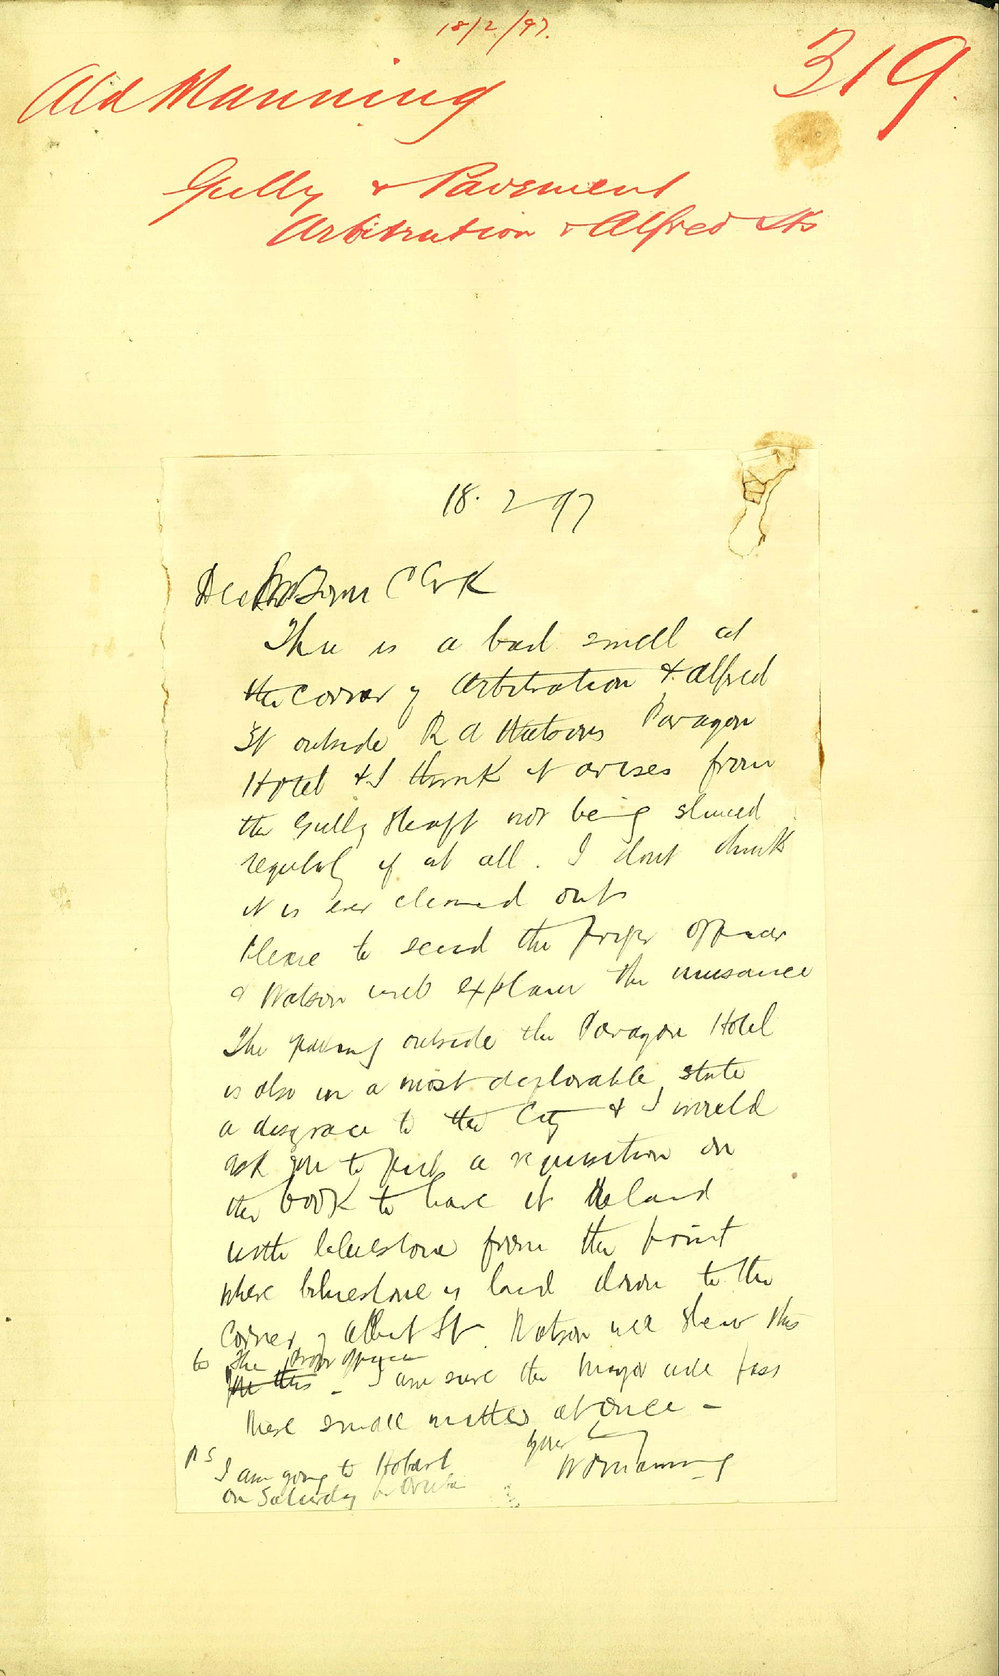 18/2/97.
319
Ald Manning
Gully & Pavement
Arbitration & Alfred Sts
18. 2 97
Dear Town Clerk
There is a bad smell at
the corner of Arbitration & Alfred
St outside R A Watsons Paragon
Hotel & I think it arises from
the Gully Shaft not being sluiced
regularly if at all. I dont think
it is ever cleaned out
Please to send the proper officer
& Watson will explain the nuisance
The paving outside the Paragon Hotel
is also in a most deplorable state
a disgrace to the City & I would
ask you to put a requisition in
the book to have it relaid
with bluestone from the point
where bluestone is laid down to the
corner of Albert St. Watson will shew this
to the proper officer
I am sure the Mayor will pass
these small matters at once -
Yours
W P Manning
PS I am going to Hobart
on Saturday